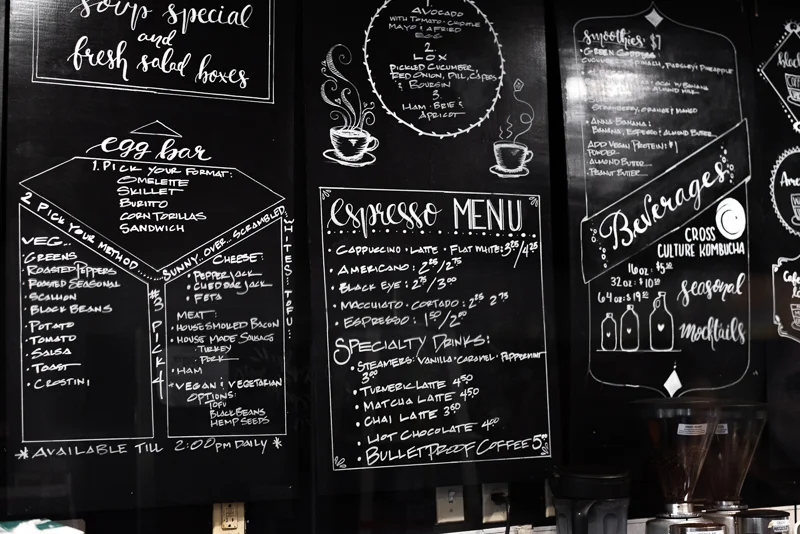 soup special
and
fresh salad boxes
egg bar
1. PICK YOUR FORMAT:
OMELETTE
SKILLET
BURITO
CORN TORILLAS
SANDWICH
2 PICK YOUR METHOD.....
SUNNY.. OVER.. SCRAMBLED
WHITES.. TOFU..
VEG..
GREENS
ROASTED PEPPERS
ROASTED SEASONAL
SCALLION
BLACK BEANS
POTATO
TOMATO
SALSA
TOAST
CROSTINI
#3 PICK 4
CHEESE:
PEPPER JACK
CHEDDAR JACK
FETA
MEAT:
HOUSE SMOKED BACON
HOUSE MADE SAUSAGE
TURKEY
PORK
HAM
VEGAN & VEGETARIAN
OPTIONS:
TOFU
BLACK BEANS
HEMP SEEDS
*AVAILABLE TILL 2:00PM DAILY*
1.
AVOCADO
WITH TOMATO - CHIPOTLE
MAYO & A FRIED
EGG
2.
LOX
PICKLED CUCUMBER,
RED ONION, DILL, CAPERS
& BOURSIN
3.
HAM - BRIE &
APRICOT
espresso MENU
• CAPPUCCINO • LATTE • FLAT WHITE: 3.25/4.25
• AMERICANO: 2.25/2.75
• BLACK EYE: 2.75/3.00
• MACCHIATO CORTADO: 2.25 2.75
• ESPRESSO: 1.50/2.00
SPECIALTY DRINKS:
• STEAMERS: VANILLA • CARAMEL • PEPPERMINT
3.00
• TURMERIC LATTE 4.50
• MATCHA LATTE 4.50
• CHAI LATTE 3.50
HOT CHOCOLATE 4.00
• BULLETPROOF COFFEE 5.00
smoothies: $7
• GREEN GODDESS:
CUCUMBER, SPINACH, PARSLEY & PINEAPPLE
STRAWBERRY, ORANGE & MANGO
• ANNA BANANA:
BANANA, ESPRESSO & ALMOND BUTTER
ADD VEGAN PROTEIN: $1
POWDER
ALMOND BUTTER
PEANUT BUTTER
Beverages
CROSS
CULTURE KOMBUCHA
16oz: $5.50
32oz: $10.50
64oz: $19.50
seasonal
mocktails